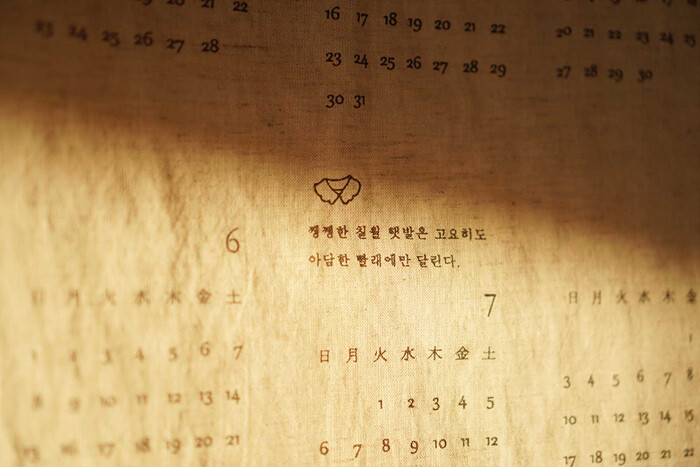 20 21 22
23 24 25 26 27 28
16 17 18 19 20 21 22
23 24 25 26 27 28 29
30 31
20 21 22 23 24 25
27 28 29 30
6
日 月 火 水 木 金 土
1 2 3 4 5 6 7
8 9 10 11 12 13 14
15 16 17 18 19 20 21
쨍쨍한 칠월 햇발은 고요히도
아담한 빨래에만 달린다.
7
日 月 火 水 木 金 土
1 2 3 4 5
6 7 8 9 10 11 12
日 月 火 水 木 金
1
3 4 5 6 7 8
10 11 12 13 14 15
17 18 19 20 21 22